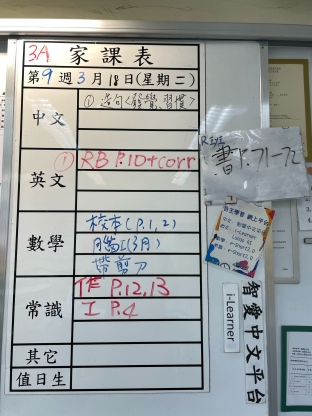 3A 家課表
第9週3月18日(星期二)
中文
①造句<發覺,習慣>
英文
① RB P.10+corr
數學
校本(P.1,2)
腦工(3月)
帶剪刀
常識
作 P.12,13
工 P.4
其它
值日生
書P.71-72
i-Learner
智愛中文平台